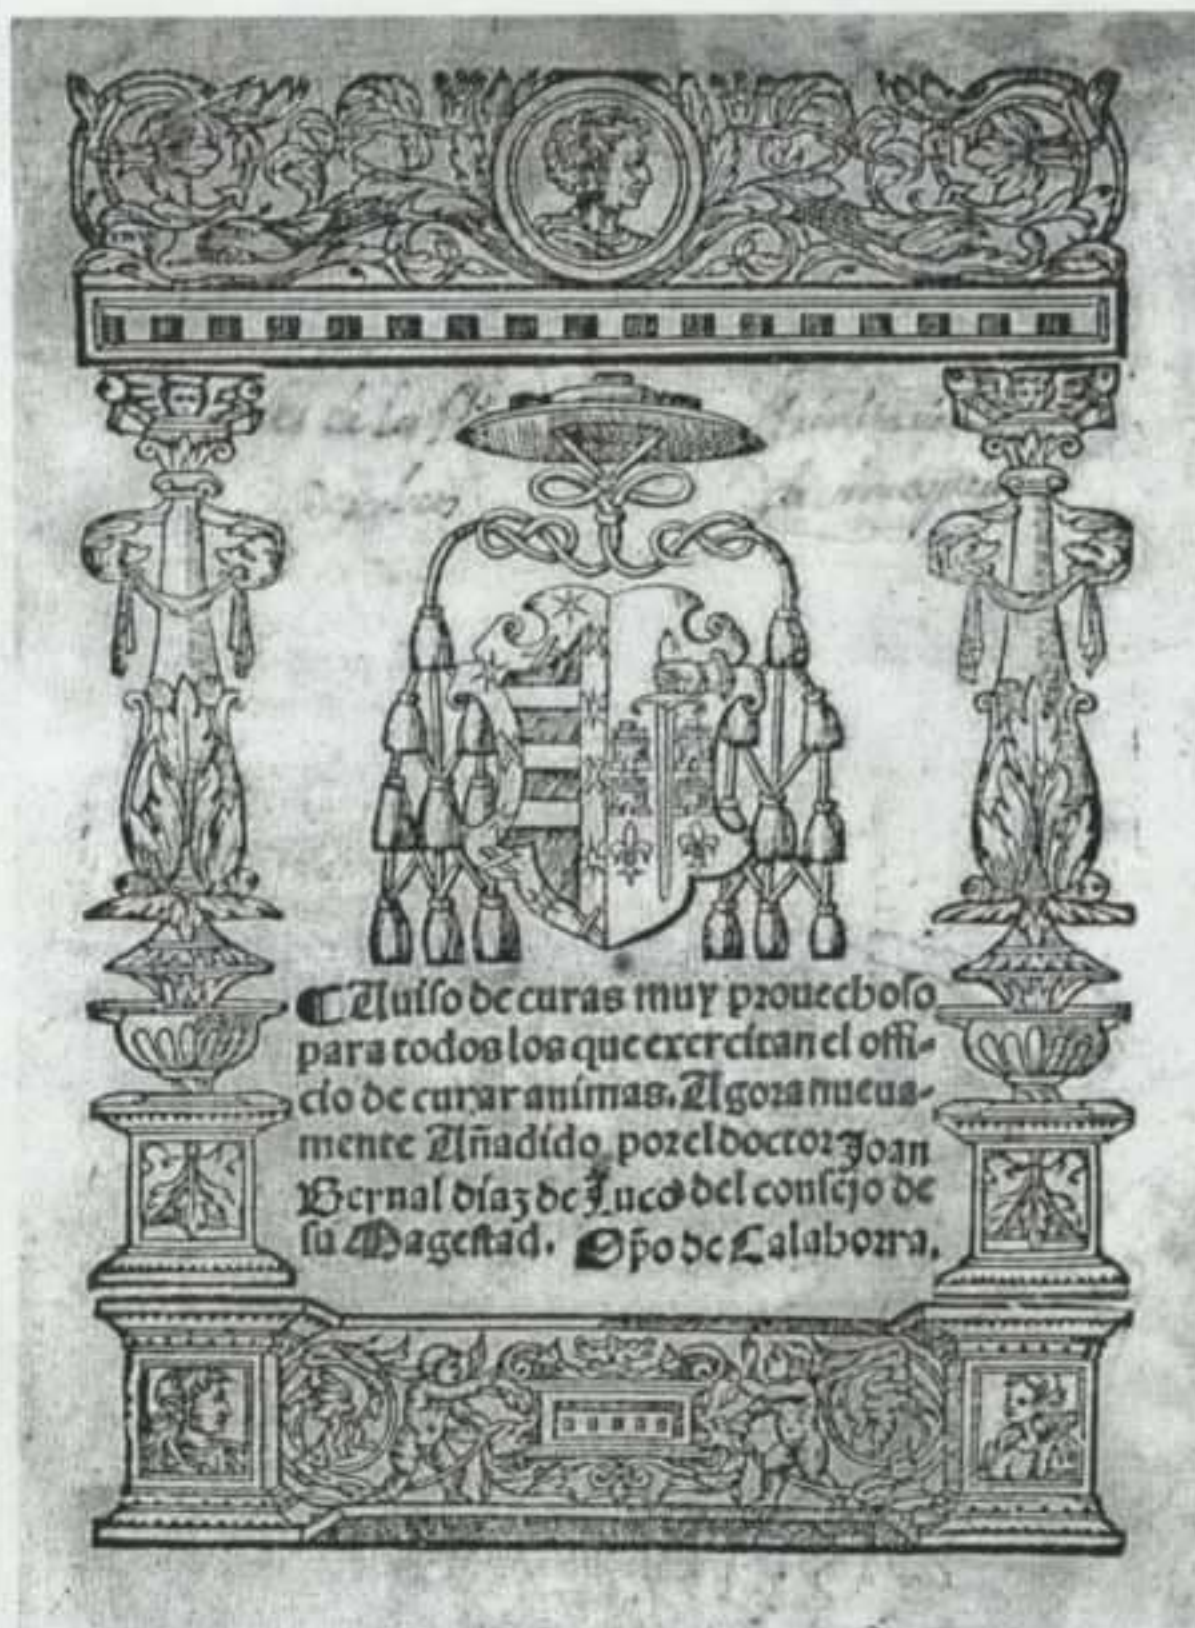 de la
¶ Auiso de curas muy prouechoso
para todos los que exercitan el offi-
cio de curar animas. Agora nueua-
mente Añadido por el doctor Joan
Bernal diaz de Luco del consejo de
su Magestad. Obp̃o de Calahorra.